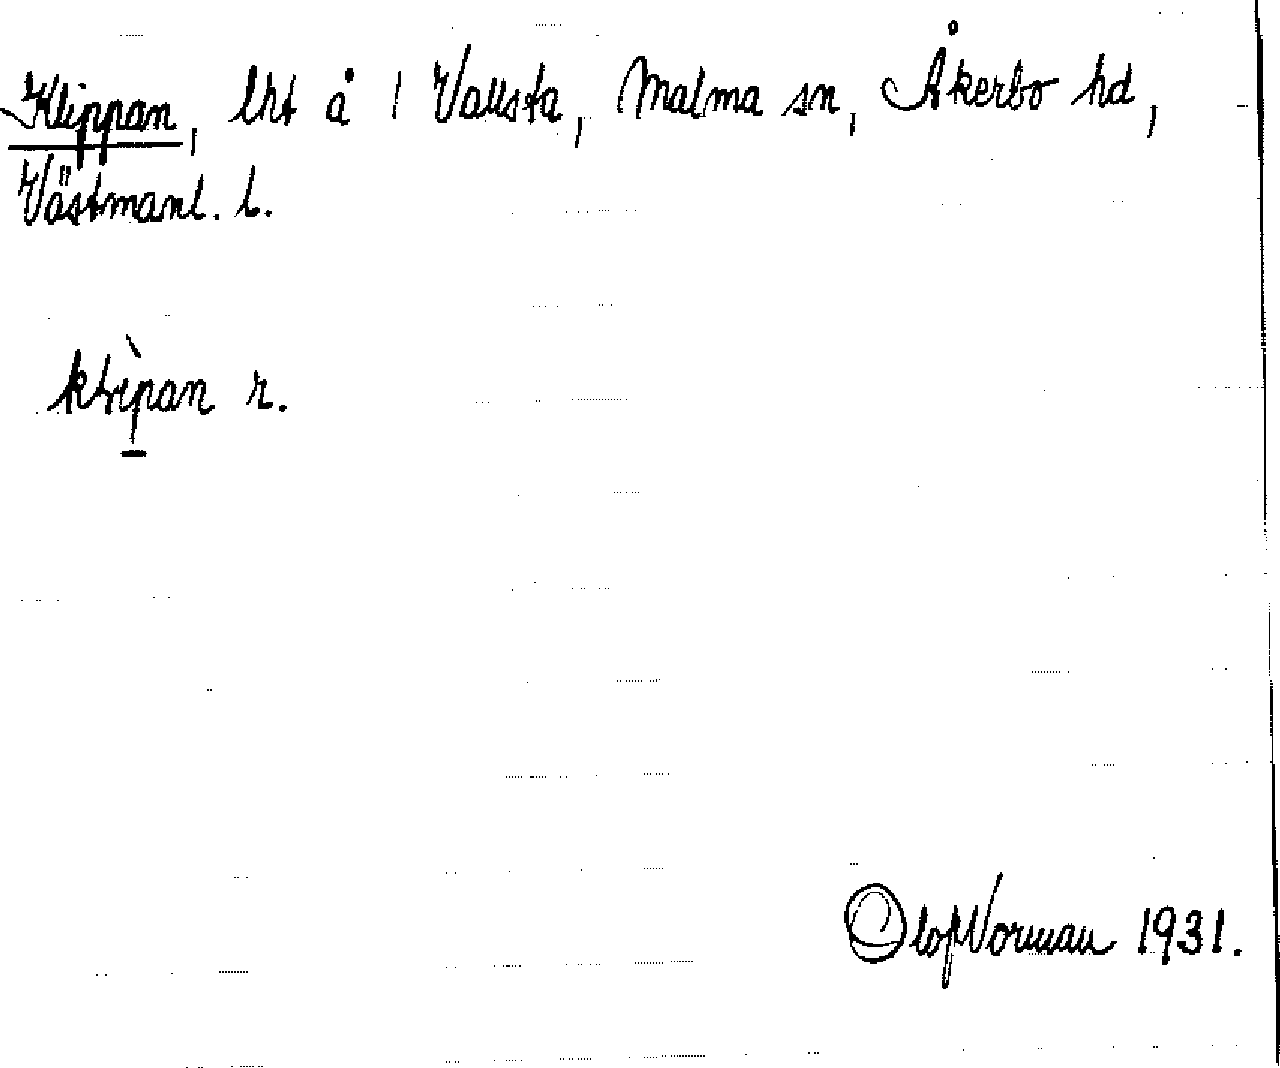 Klippan, lht å 1 Vallsta, Malma sn, Åkerbo hd,
Västmanl. l.
klìpan r.
Olof Norman 1931.